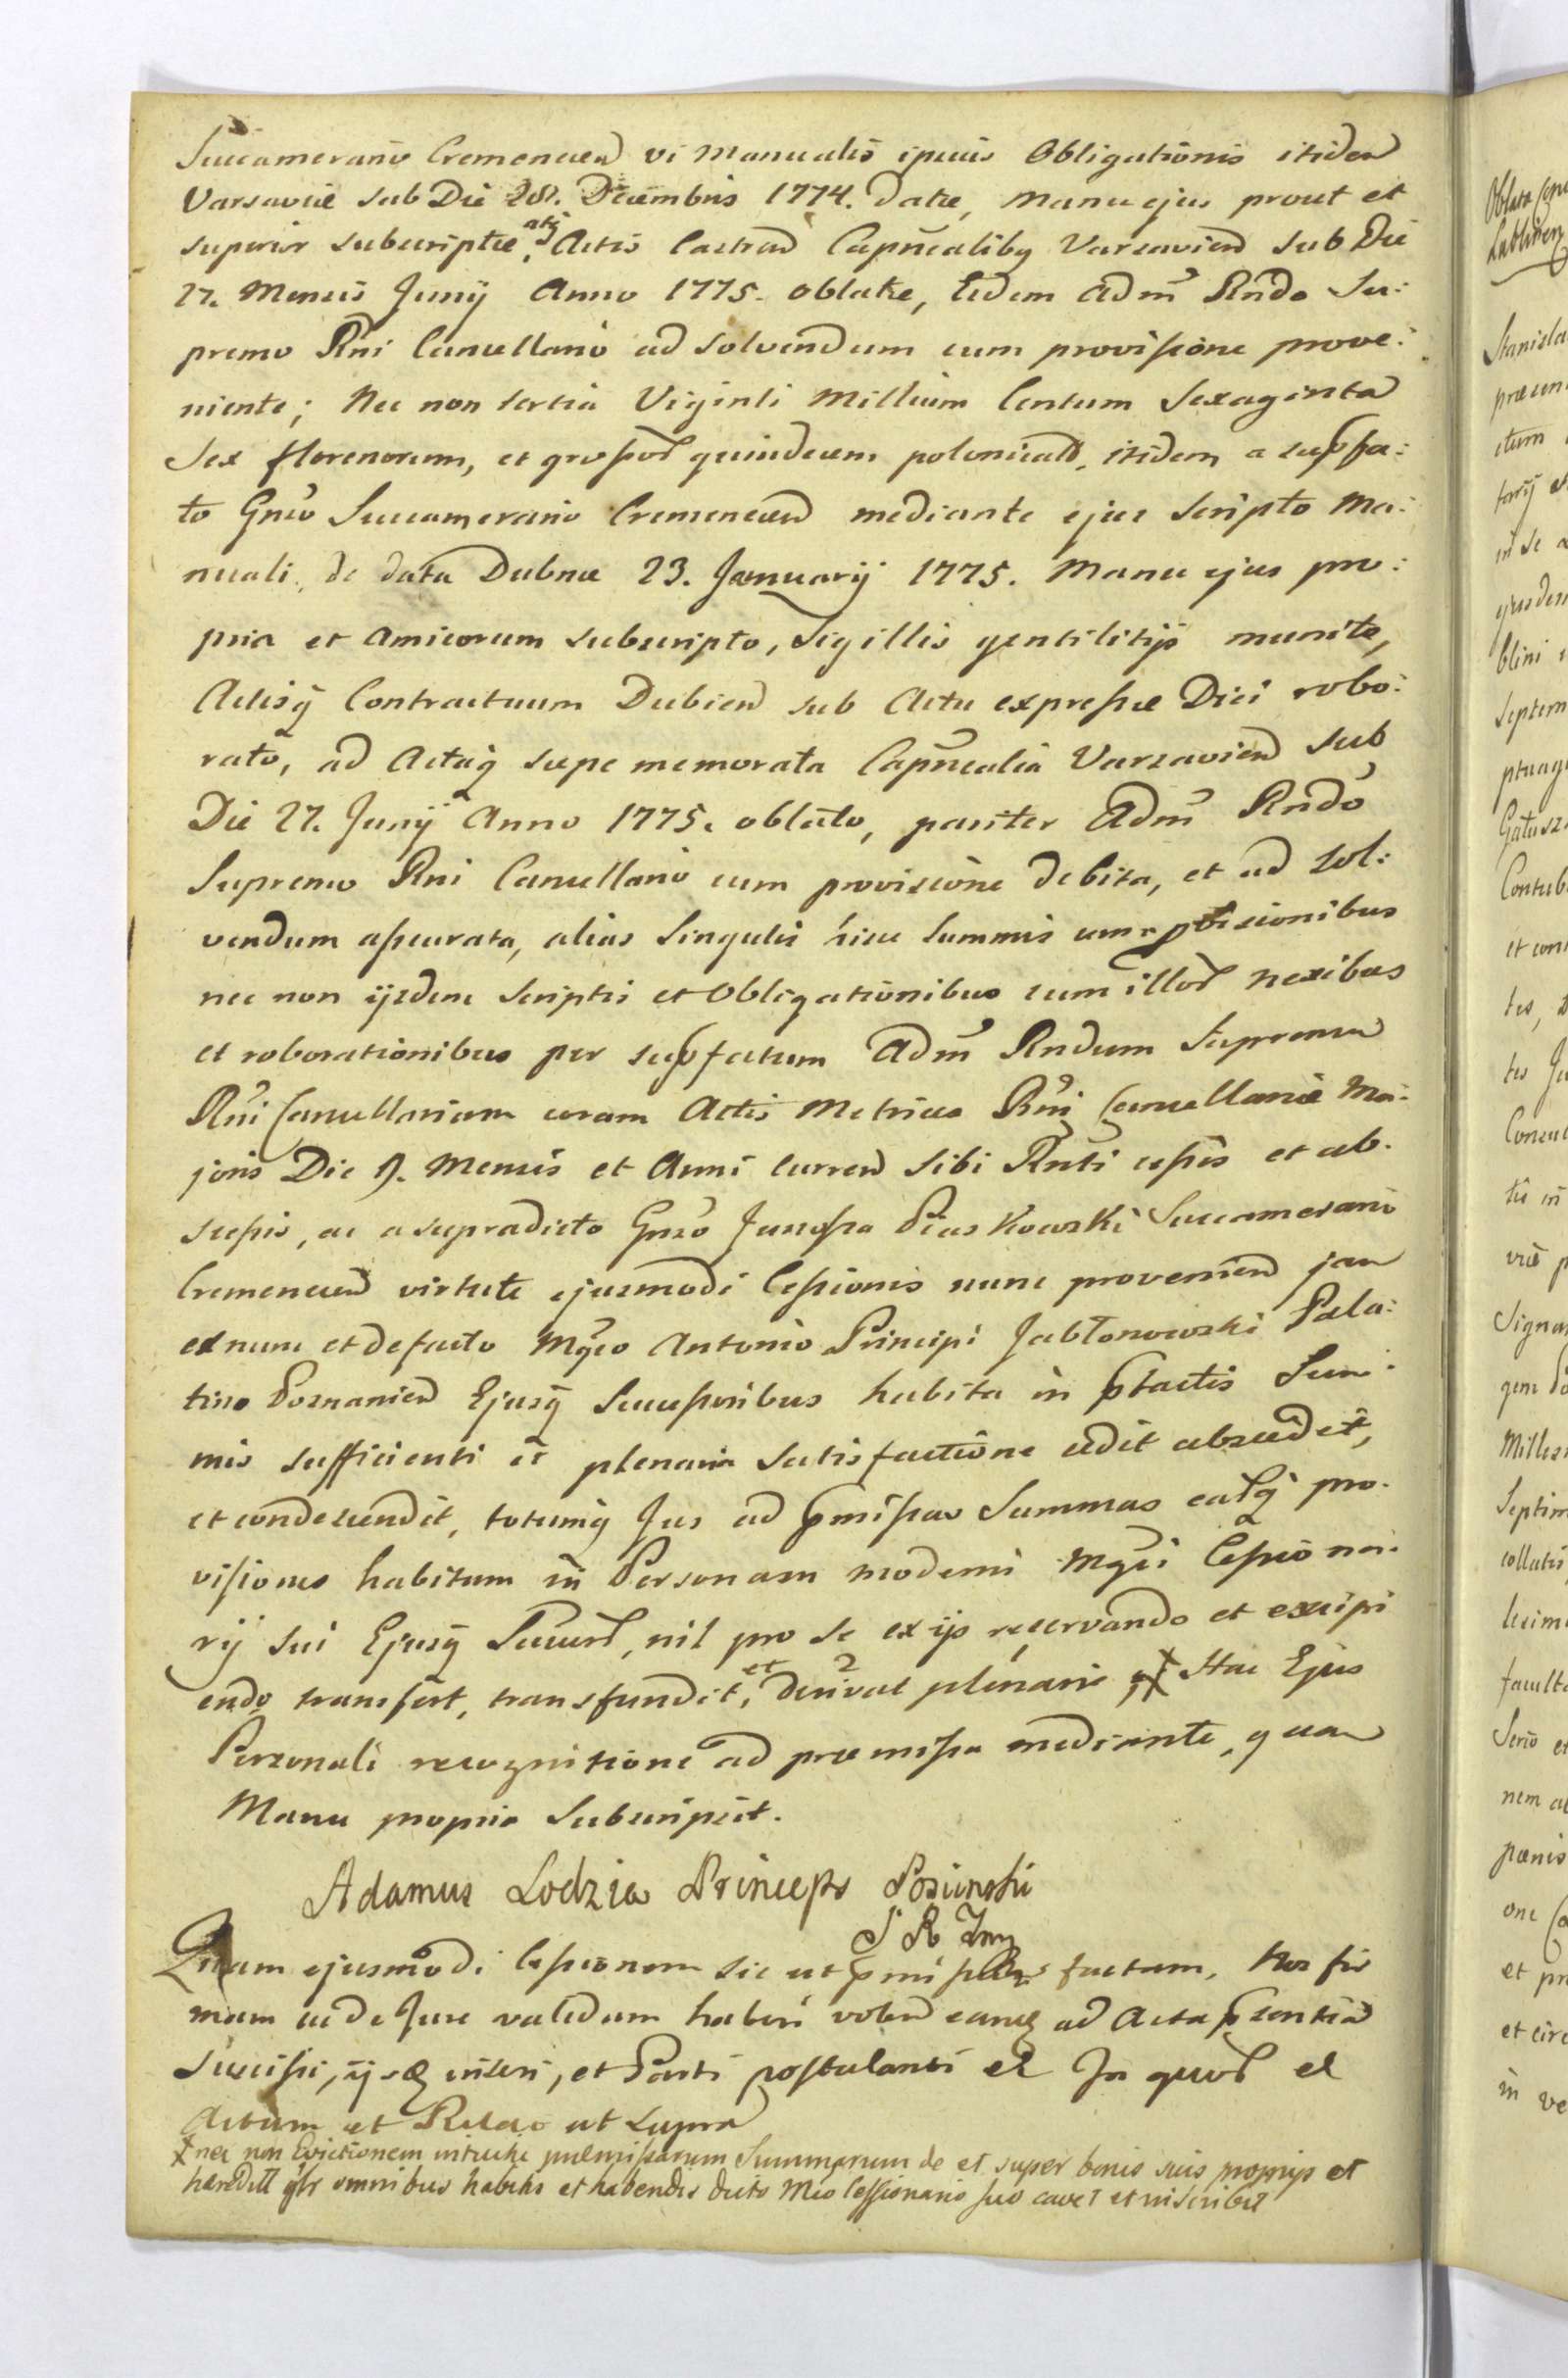 Succamerario Cremenecen vi Manualis ipsius Obligationis itidem
Varsaviæ sub Die 28. Decembris 1774. datæ, manu ejus prout et
superior subscriptæ, atq Actis Castren Capnealibq Varsavien sub Die
27. Mensis Junij Anno 1775. oblatæ, Eidem Adm Rndo Su:
premo Rni Cancellario ad solvendum cum provisione prove:
niente; Nec non tertia Viginti Millium Centum Sexaginta
Sex florenorum, et grossor quindecem polonicals, itidem a supfa:
to Gnso Succamerario Cremenecen mediante ejus scripto Ma:
nuali de data Dubnæ 23. Januarij 1775. Manu ejus pro:
pria et Amicorum subscripto, Sigillis gentilitijs munito,
Actisq Contractuum Dubien sub Actu expressæ Diei robo:
rato, ad Actaq sæpe memorata Capnealia Varsavien sub
Die 27. Junij Anno 1775. oblato, pariter Adm Rndo
Supremo Rni Cancellario cum provisione debita, et ad sol:
vendum assecurata, alias Singulis hisce Summis cum provisionibus
nec non ijsdem Scriptis et Obligationibus cum illor nexibus
et roborationibus per supfatum Adm Rndum Supremum
Rni Cancellarium coram Actis Metrices Rni Cancellariæ Ma:
joris Die 9. Mensis et Anni curren sibi Rnti cessis et ab:
scessis, ac a supradicto Gnso Junosza Piaskowski Succamerario
Cremenecen virtute ejusmodi Cessionis nunc provenien jam
ex nunc et defacto Mgco Antonio Principi Jabłonowski Pala:
tino Posnanien Ejusq Successoribus habita in ptactis Sum:
mis sufficienti et plenaria satisfactione cedit abscedit,
et condescendit, totumq Jus ad pmissas Summas earq pro:
visiones habitum in Personam moderni Mgci Cessiona:
rij sui Ejusq Succes, nil pro se ex ijs reservando et excipi
endo transfert, transfundit, et derivat plenarie, X Hac Ejus
Personali recognitione ad præmissa mediante, quam
Manu propria Subscripsit.
Adamus Lodzia Princeps Poninski
S R Imp
Quam ejusmodi Cessionem sic ut pmissum factam, Nos fir
mam ac de Jure validam haberi volen eamq ad Acta psentia
Suscipi, ijsq inseri, et Parti postulanti el In quor el
Actum et Relao ut Supra
X nec non Evictionem intuitu præmissarum Summarum de et super bonis suis proprijs et
hæreditt gblr omnibus habitis et habendis dicto Mco Cessionario suo cavet et inscribit